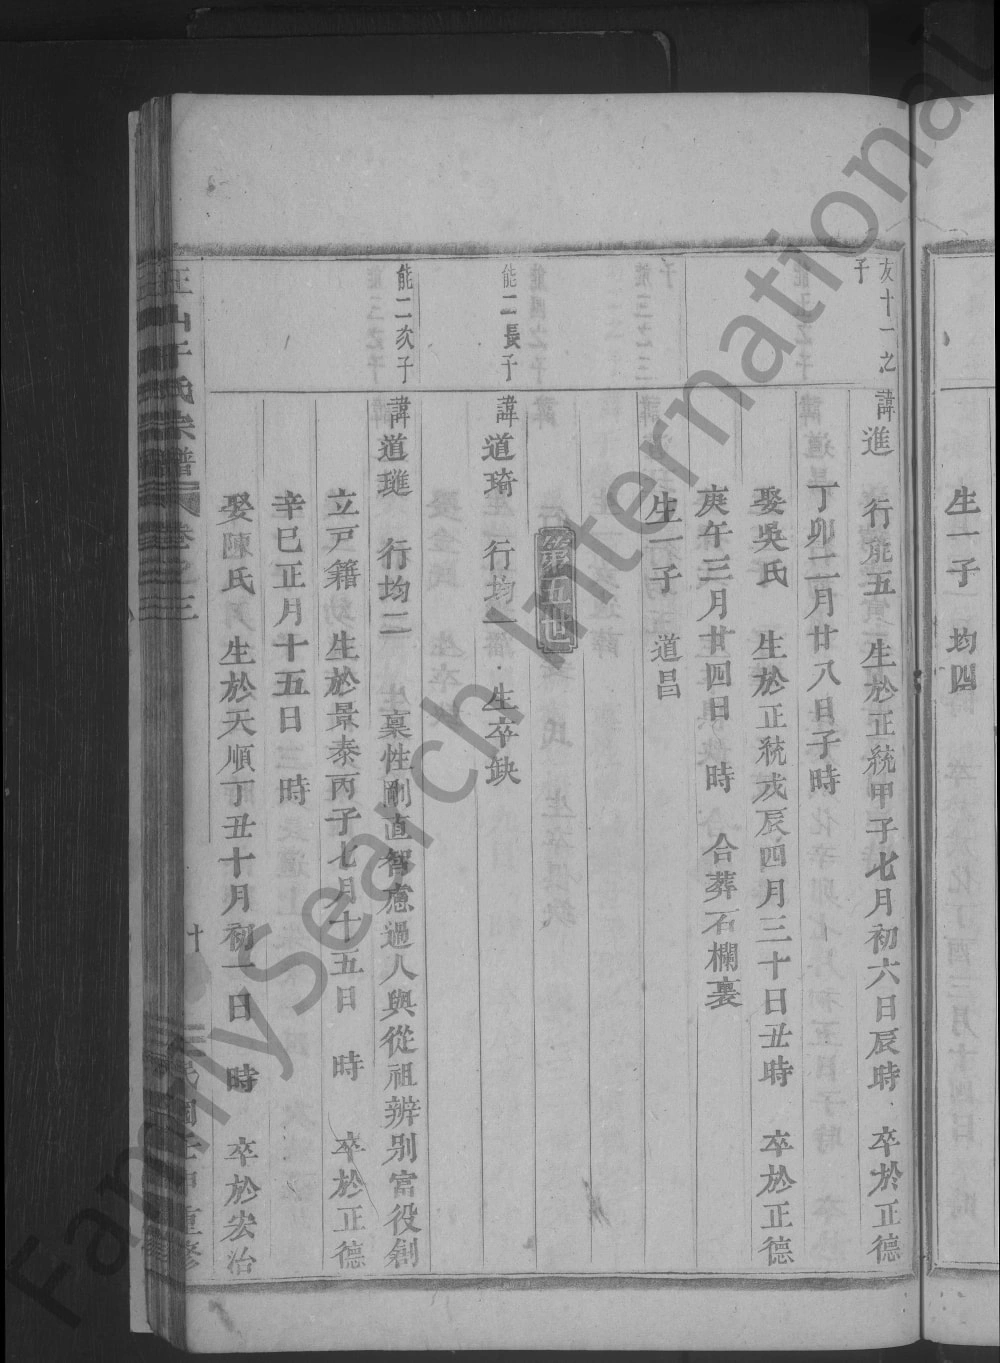 生一子 均四
友十一之子
諱進 行能五 生於正統甲子七月初六日辰時 卒於正德
丁卯二月廿八日子時
娶吳氏 生於正統戊辰四月三十日丑時 卒於正德
庚午三月廿四日 時 合葬石欄裏
生一子 道昌
第五世
能二長子
諱道琦 行均一 生卒缺
能二次子
諱道璡 行均二 稟性剛直智慮過人與從祖辨別富役創
立戸籍 生於景泰丙子七月十五日 時 卒於正德
辛巳正月十五日 時
娶陳氏 生於天順丁丑十月初一日 時 卒於宏治
山于氏宗譜 卷之三 十 重修
FamilySearch International